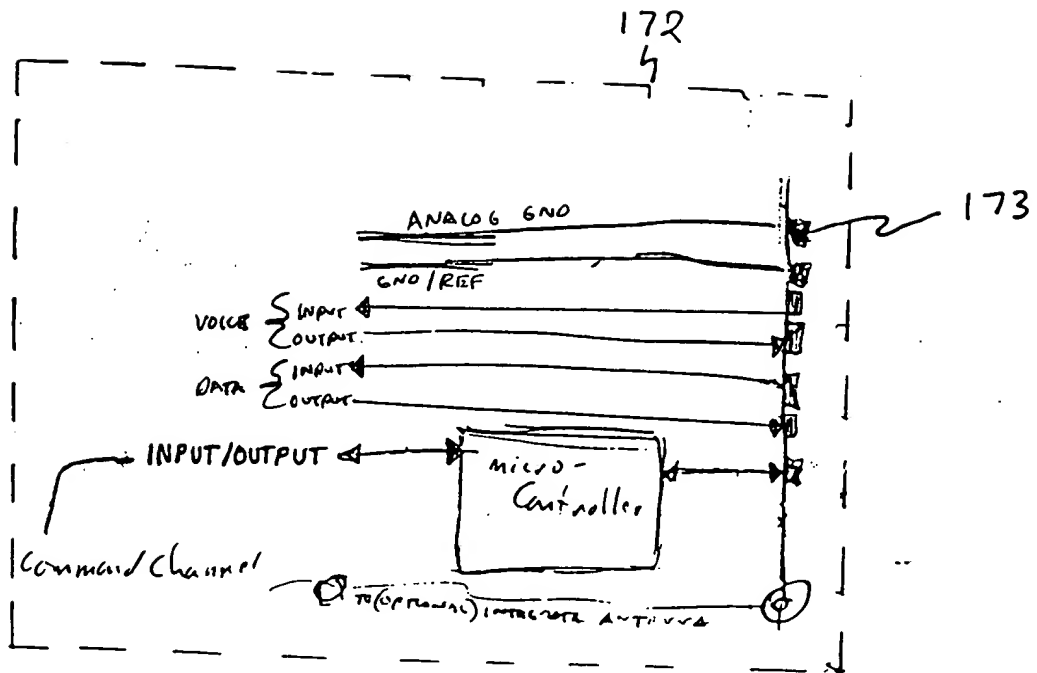 172
173
ANALOG GND
GND/REF
VOICE { INPUT
OUTPUT
DATA { INPUT
OUTPUT
INPUT/OUTPUT
Micro-
Controller
Command Channel
TO (OPTIONAL) INTEGRATE ANTENNA